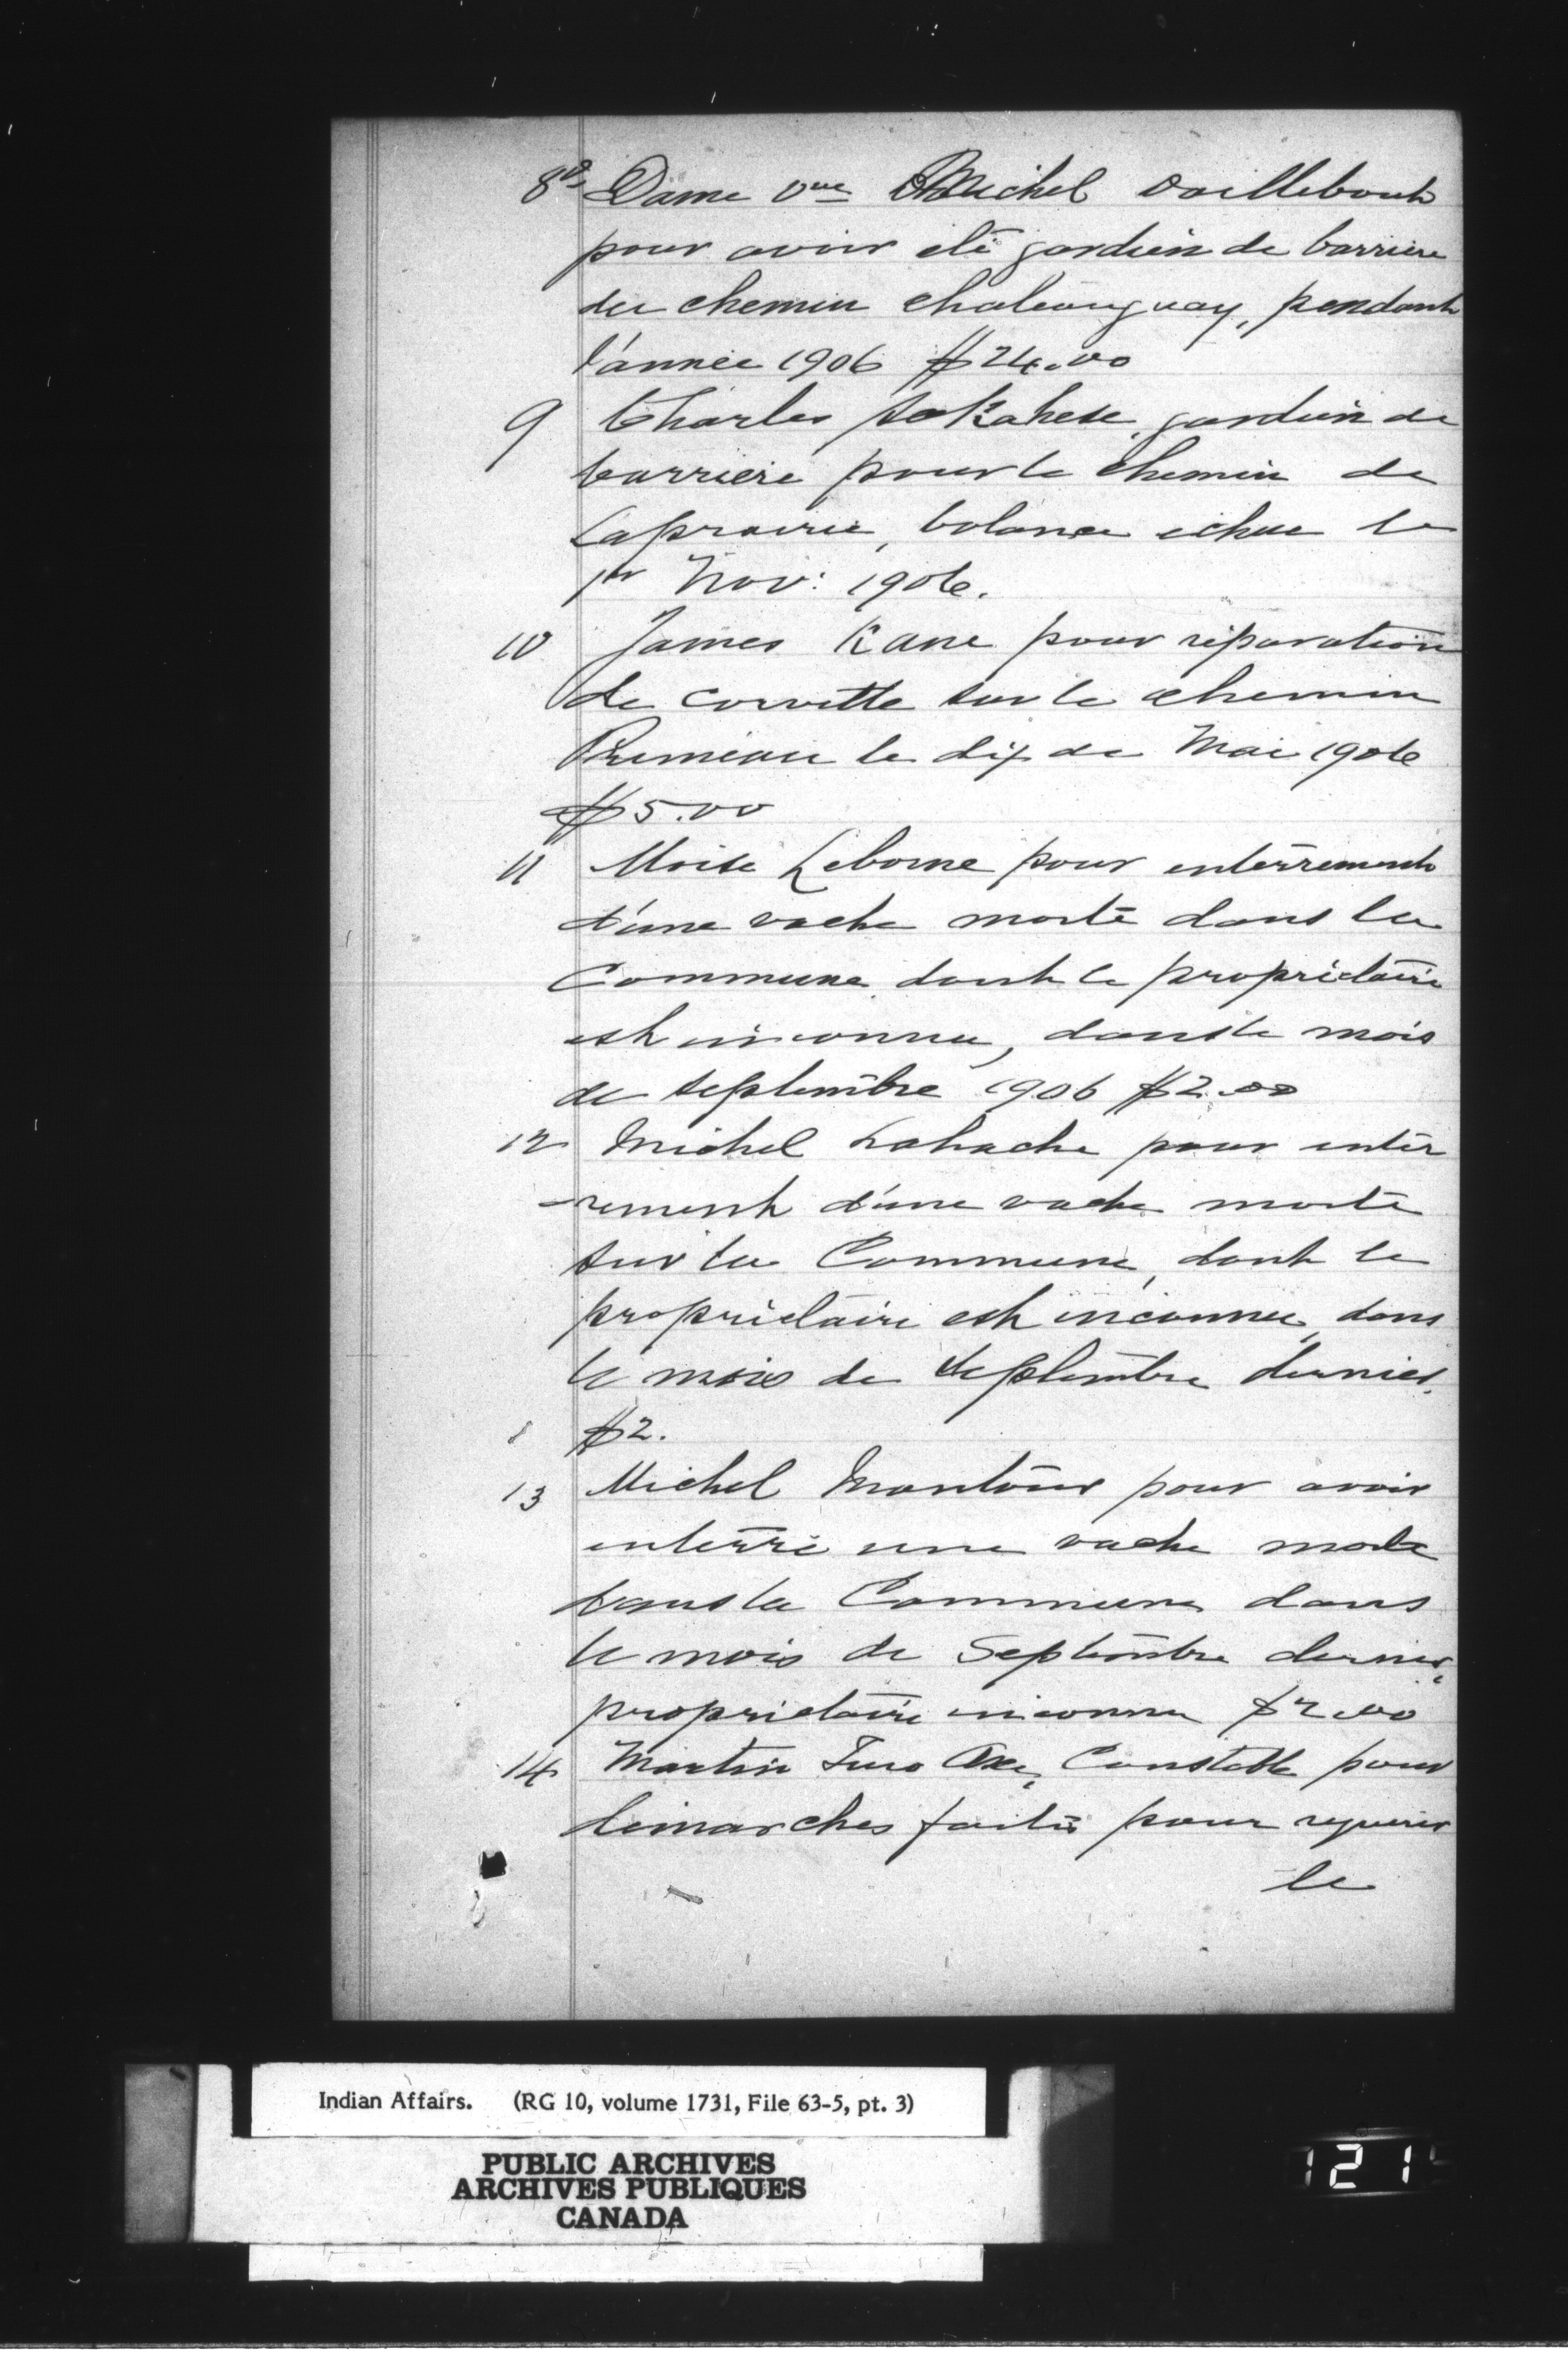 8° Dame Vve Michel Daillebout
pour avoir été gardien de barriere
du chemin chateauguay, pendant
l'année 1906 $24.00
9 Charles Sakahese, gardien de
barriere pour le chemin de
Laprairie, balance echue le
1er Nov: 1906.
10 James Kane pour réparation
de corvette sur le chemin
Primeau le dix de Mai 1906
$5.00
11 Moise Leborne pour enterrement
d'une vache morte dans la
Commune, dont le propriétaire
est inconnu, dans le mois
de septembre 1906 $2.00
12 Michel Lahache pour enter
-rement d'une vache morte
sur la Commune, dont le
propriétaire est inconnu, dans
le mois de Septembre dernier.
$2.
13 Michel Montour pour avoir
enterré une vache morte
dans la Commune dans
le mois de Septembre dernier,
propriétaire inconnu $2.00
14 Martin Two Axe, Constable pour
démarches faites pour requérir
le
Indian Affairs. (RG 10, volume 1731, File 63-5, pt. 3)
PUBLIC ARCHIVES
ARCHIVES PUBLIQUES
CANADA